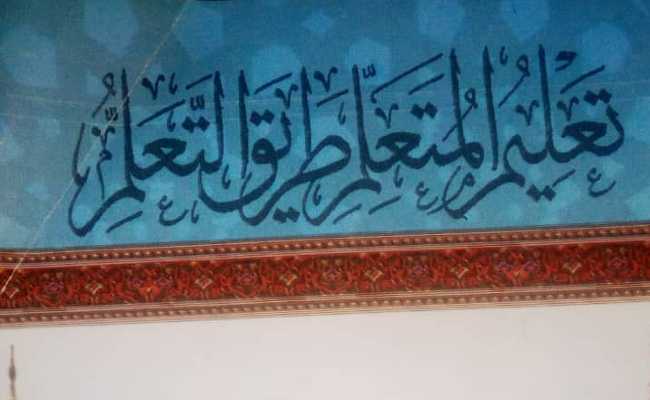 تَعْلِيمُ المُتَعَلِّمِ طَرِيقَ التَّعَلُّمِ